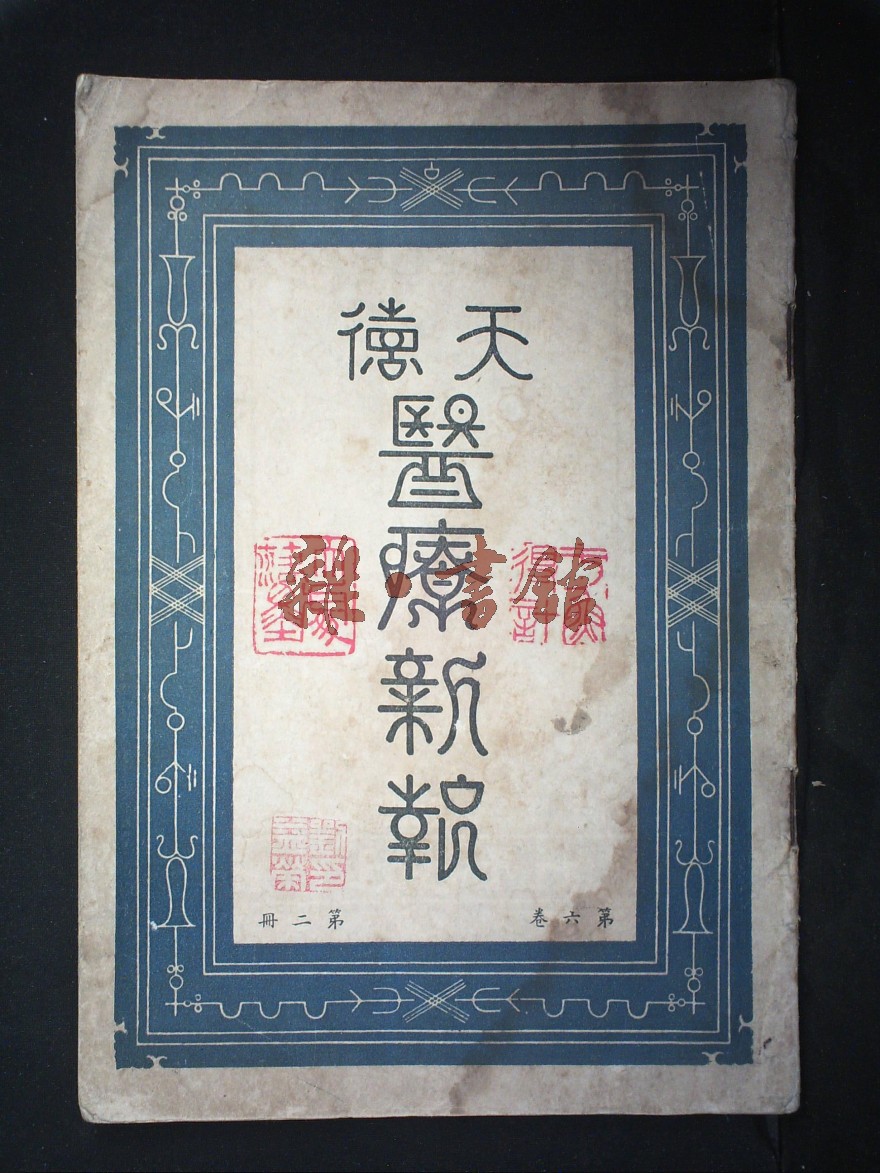 天德
醫療新報
第六卷
第二冊
雜·書館